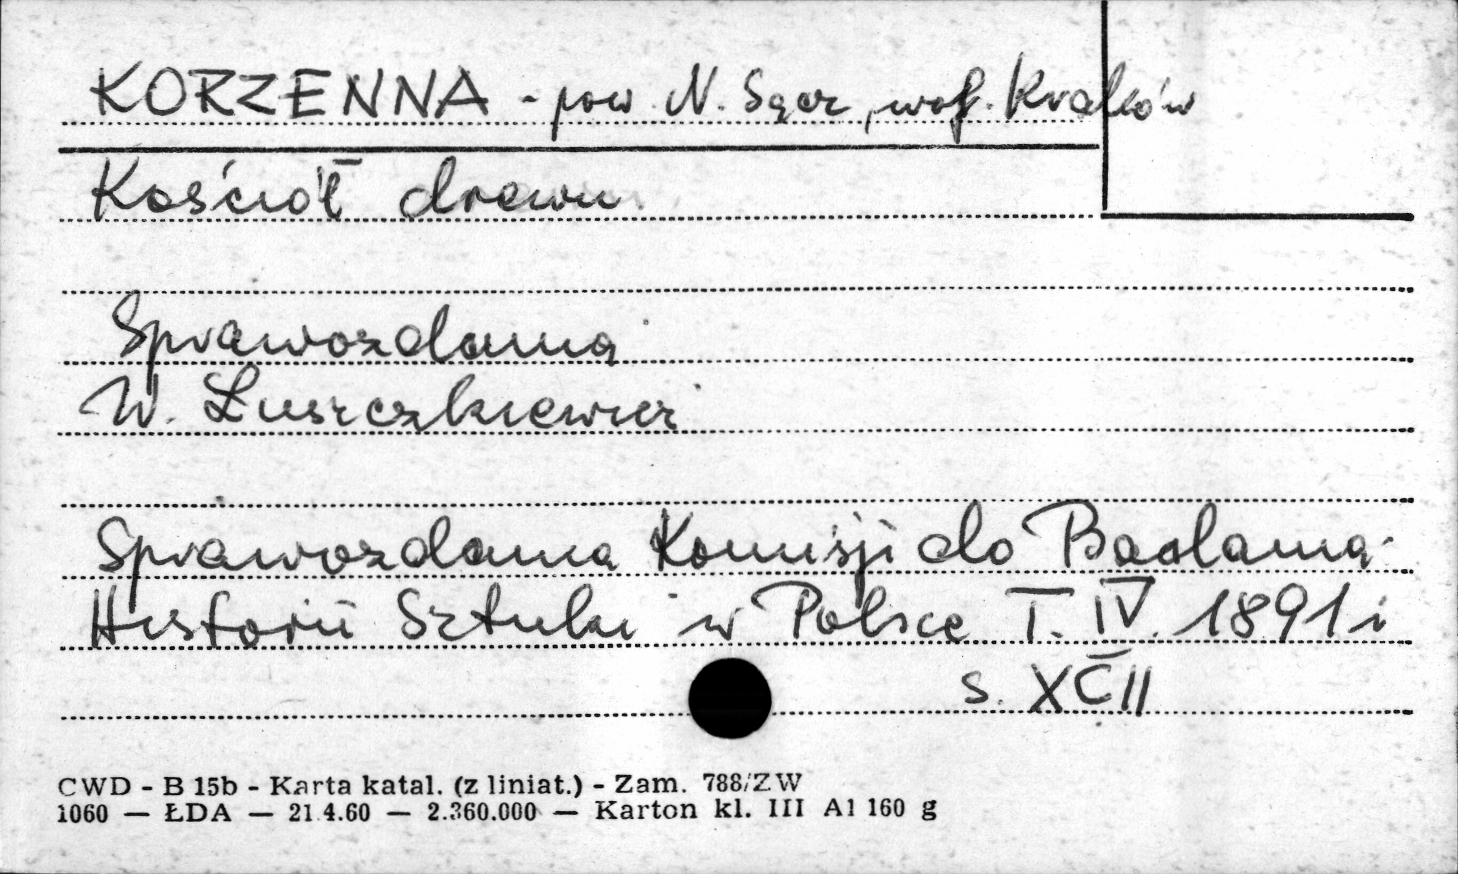 KORZENNA - pow. N. Sącz, woj. Kraków
Kościół drewn.
Sprawozdania
W. Łuszczkiewicz
Sprawozdania Komisji do Badania
Historii Sztuki w Polsce T. IV. 1891 i
s. XCII
CWD - B 15b - Karta katal. (z liniat.) - Zam. 788/ZW
1060 — ŁDA — 21.4.60 — 2.360.000 — Karton kl. III A1 160 g